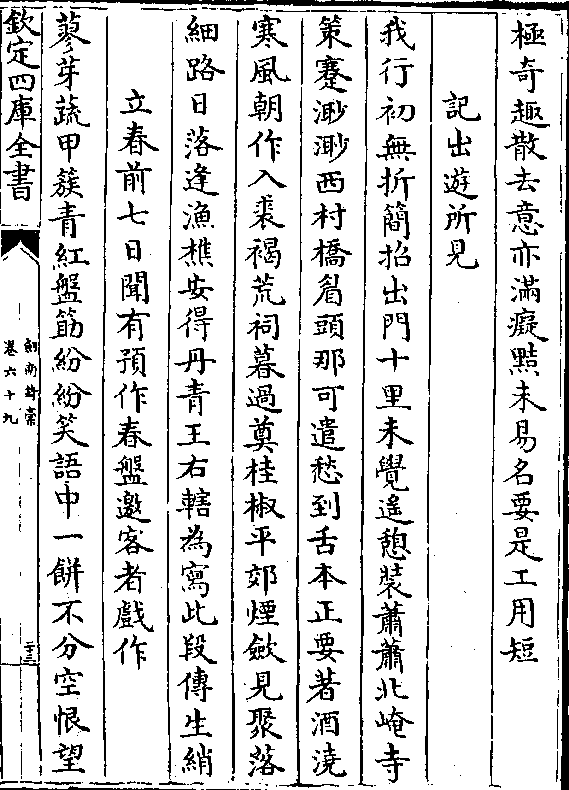 極奇趣散去意亦滿癡黠未易名要是工用短
記出遊所見
我行初無折簡招出門十里未覺遙憩裝蕭蕭北崦寺
策蹇渺渺西村橋眉頭那可遣愁到舌本正要著酒澆
寒風朝作入裘褐荒祠暮過奠桂椒平郊煙斂見聚落
細路日落逢漁樵安得丹青王右轄為寫此段傳生綃
立春前七日聞有預作春盤邀客者戲作
蓼芽蔬甲簇青紅盤筯紛紛笑語中一餅不分空恨望
欽定四庫全書
劍南詩槀
卷六十九
二十三